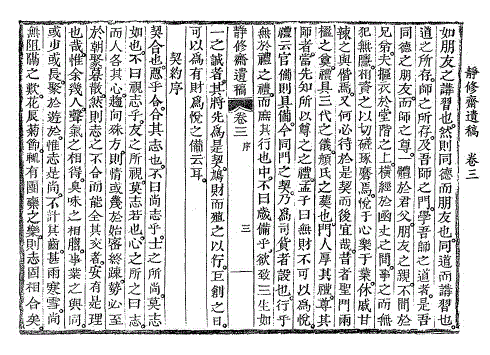 靜修齋遺稿 卷三
如朋友之講習也然則同德而朋友也同道而講習也
道之所存師之所存及吾師之門學吾師之道者是吾
同德之朋友而師之尊體於君父朋友之親不間於
兄弟夫摳衣於堂階之上橫經於函丈之間事之而無
犯無隱相資之以切磋琢磨焉悅于心樂于葉休戚甘
辣之與偕焉又何必待於是契而後宜哉昔者聖門兩
楹之奠禮具三代之儀顏氏之葬也門人厚其禮尊其
師者當先知所以尊之之禮孟子曰無財不可以爲悅
禮云官備則具備今同門之契乃爲司貨者設也行乎
無於禮之禮而庶其行也中不曰歲備乎欲致三生如
靜修齋遺稿 卷三 序 三
一之誠者其將先爲是契鳩財而殖之以行巨創之日
可以爲有財爲悅之備云耳
契約序
契合也應乎合合其志也不曰尚志乎士之所尚莫志
如也不曰視志乎友之所視莫志若也心之所之曰志
而人各其心趨向殊方則情或幾於始密終踈勢必至
於朝聚暮散然則志之不合而能全其交者安有是理
也哉惟余幾人聲氣之相得臭味之相膠事業之與同
或步或長聚於遊於惟志是尚不計其齒甚雨寒雪尚
無阻隔之歎花辰菊節輒有團欒之樂則志固相合矣